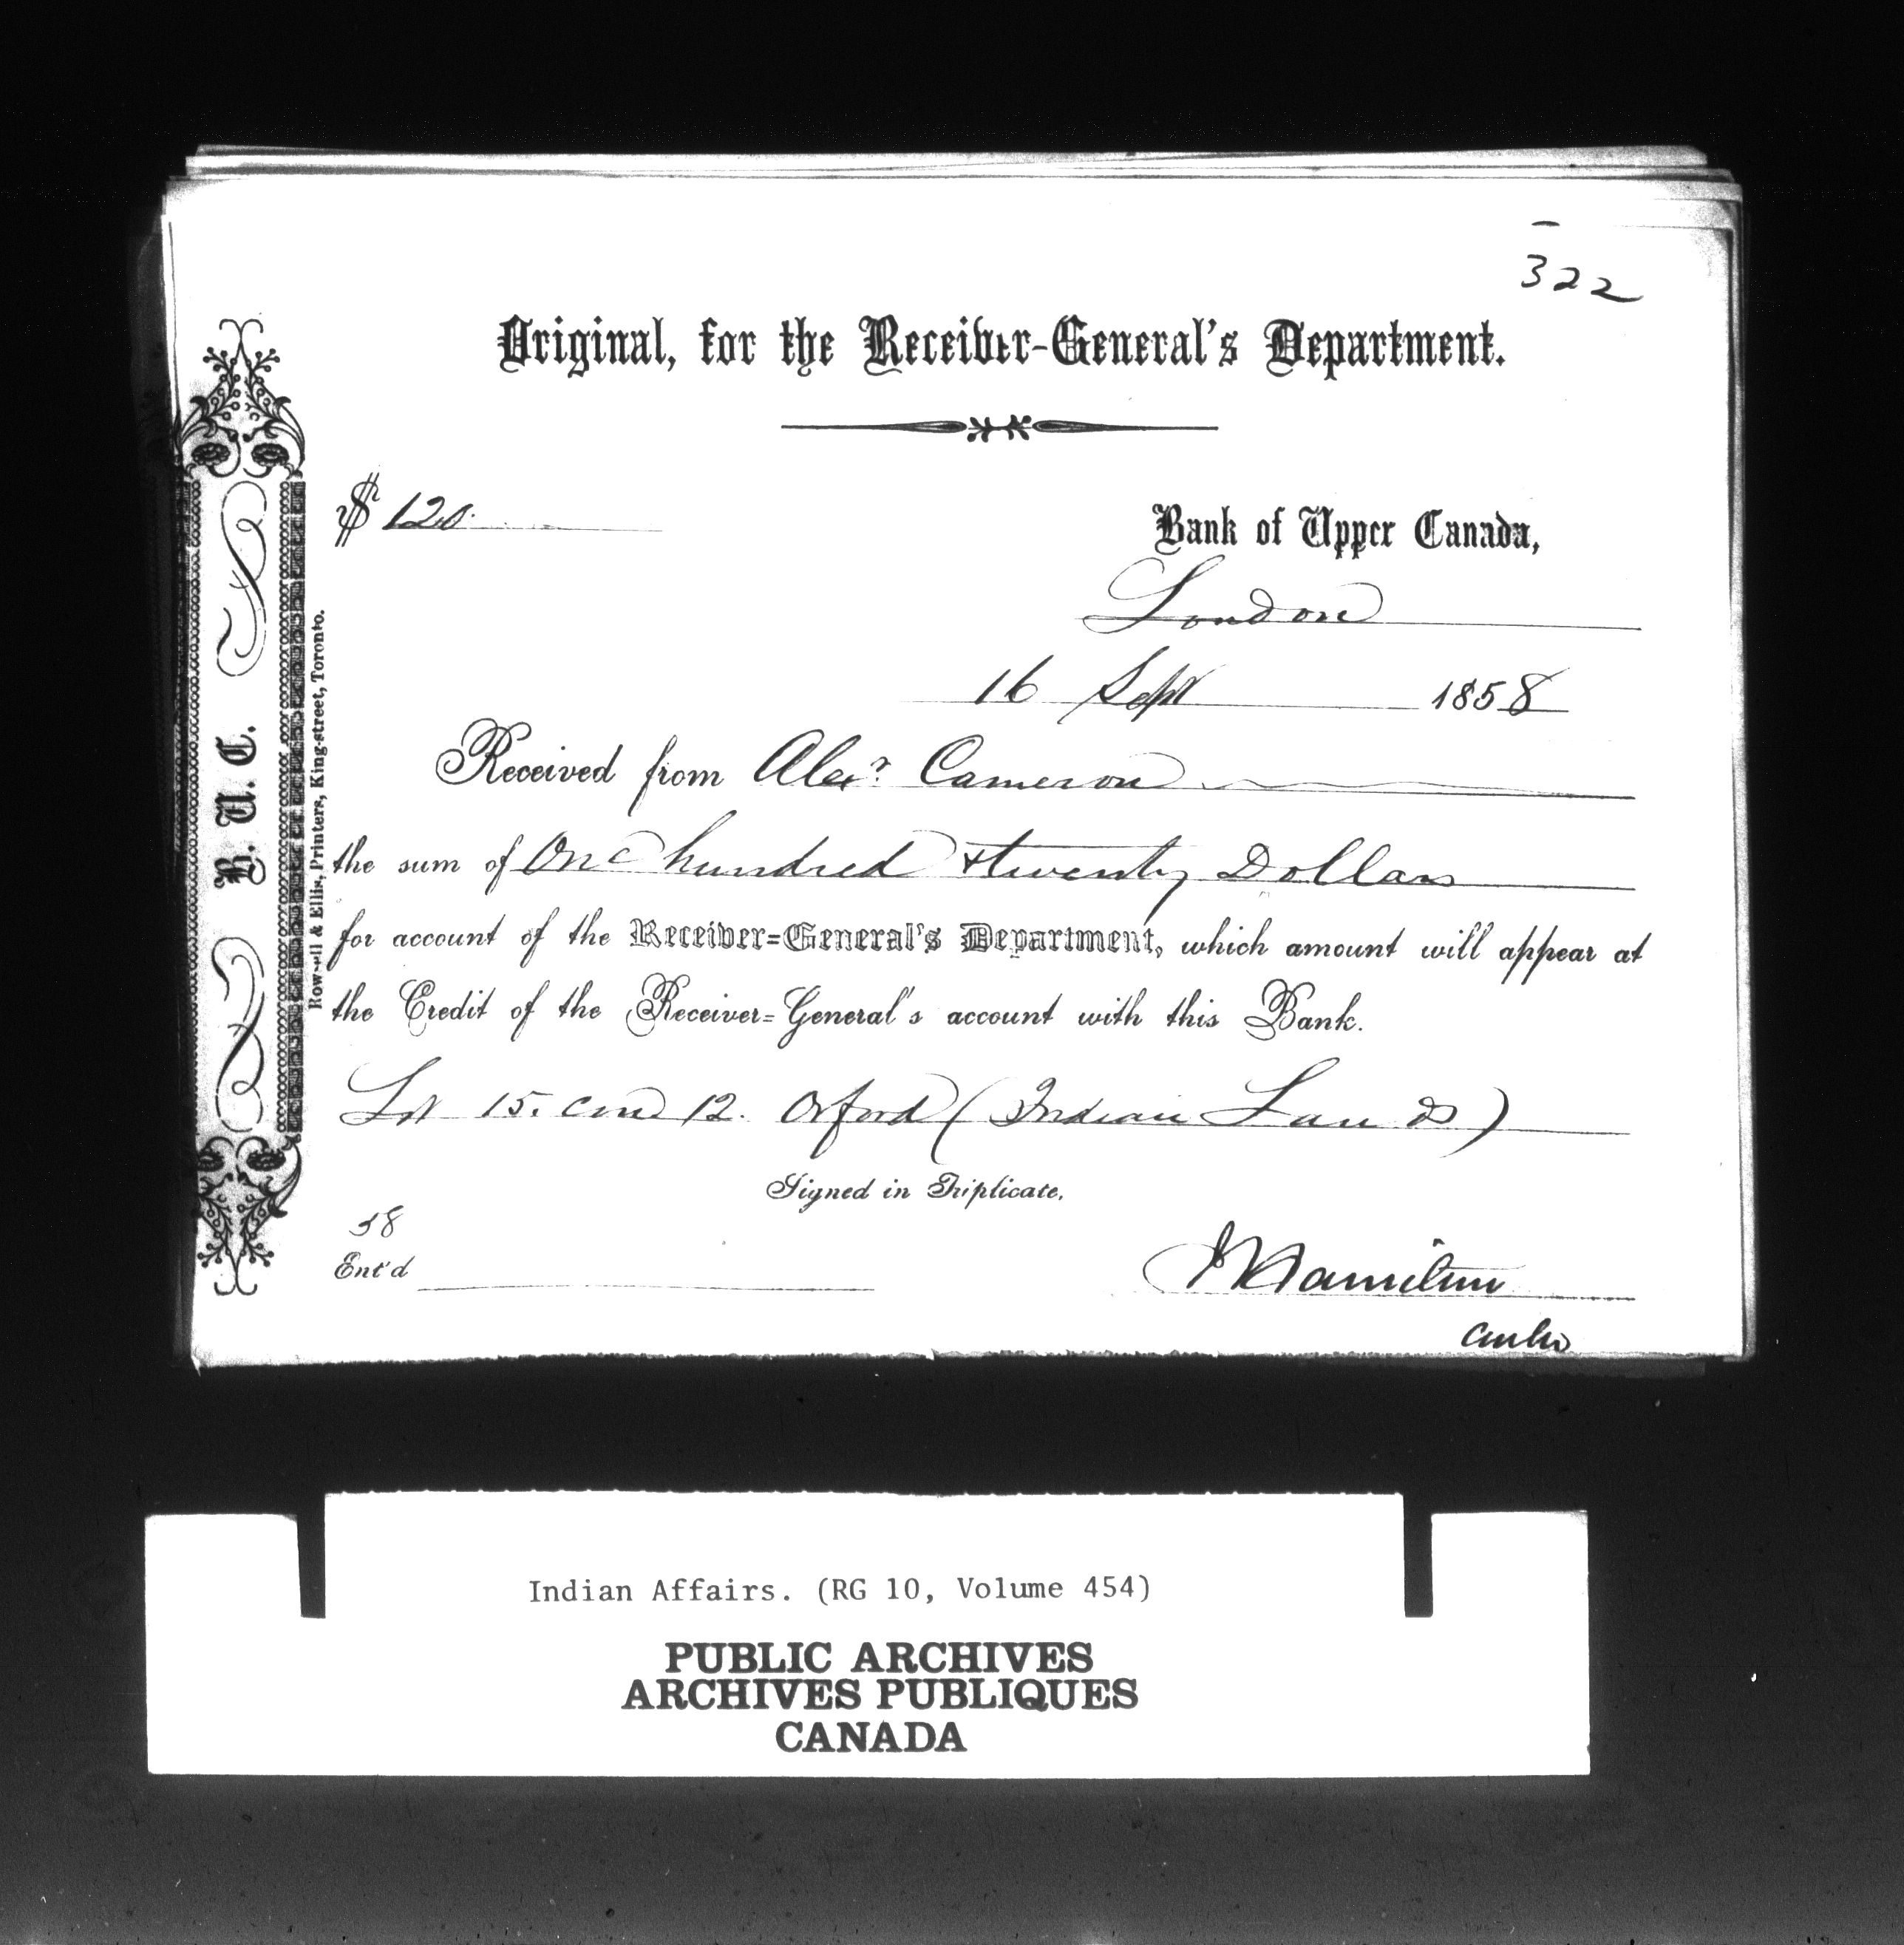 322
Original, for the Receiver-General's Department.
$ 120.
Bank of Upper Canada,
London
16 Sept 1858
Received from Alexr. Cameron
the sum of One hundred & twenty Dollars
for account of the Receiver=General's Department, which amount will appear at
the Credit of the Receiver=General's account with this Bank.
Lot 15. con 12. Orford (Indian Lands)
Signed in Triplicate,
58
Ent'd
JHamilton
B. U. C.
Rowsell & Ellis, Printers, King-street, Toronto.
Indian Affairs. (RG 10, Volume 454)
PUBLIC ARCHIVES
ARCHIVES PUBLIQUES
CANADA